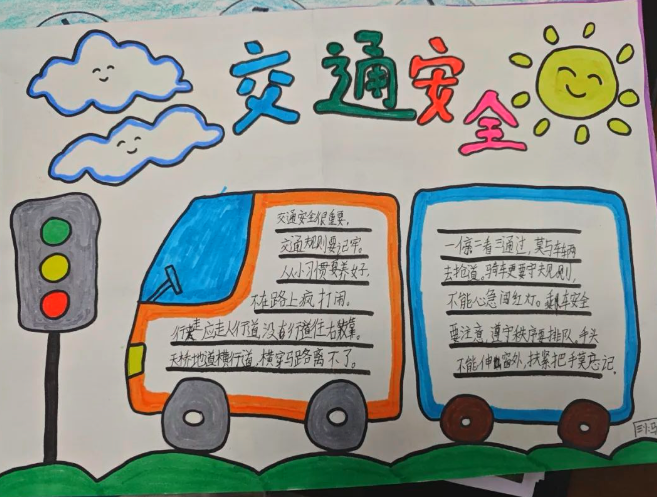 交通安全
交通安全很重要，
交通规则要记牢。
从小习惯要养好，
不在路上疯打闹。
行走应走人行道，没有行道往右靠。
天桥地道横行道，横穿马路离不了。
一停二看三通过，莫与车辆
去抢道。骑车更要守规则，
不能心急闯红灯。乘车安全
要注意，遵守秩序要排队。手头
不能伸窗外，扶紧把手莫忘记。